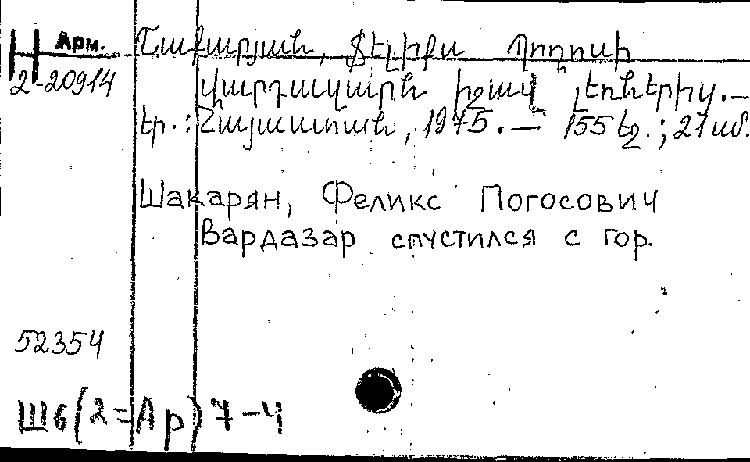 Арм. Շաքարյան, Ֆելիքս Պողոսի
2-20914 Վարդազարն իջավ լեռներից.—
Եր.: Հայաստան, 1975.— 155 էջ.; 21 սմ.
Шакарян, Феликс Погосович
Вардазар спустился с гор.
52354
Ш6(2=Ар)7-4